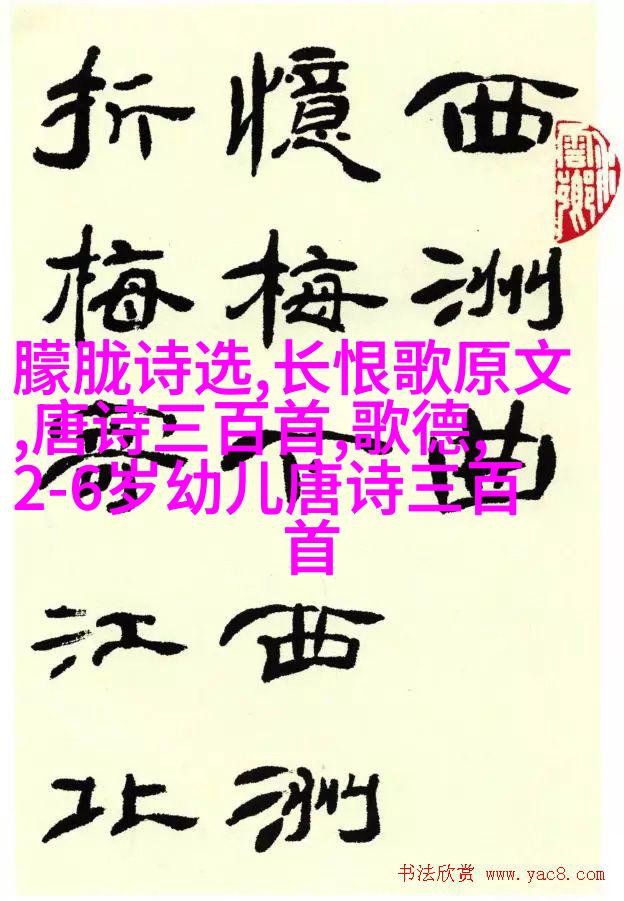 西洲曲
憶梅下西洲
折梅寄江北
朦胧诗选,长恨歌原文
,唐诗三百首,歌德,
2-6岁幼儿唐诗三百
首
书法欣赏 www.yac8.com